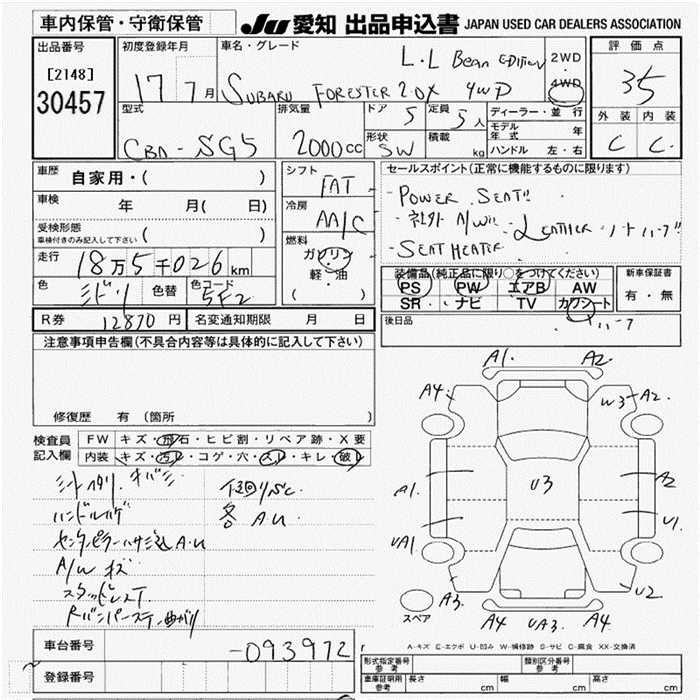 車内保管・守衛保管
JU 愛知 出品申込書 JAPAN USED CAR DEALERS ASSOCIATION
出品番号
[2148]
30457
初度登録年月
17 7月
車名・グレード
L.L Bean EDITION
SUBARU FORESTER 2.0X 4WD
2WD
4WD
評価点
35
外装 内装
C C
型式
CBA-SG5
排気量
2000cc
ドア
5
定員
5人
形状
SW
積載
kg
ディーラー・並行
モデル年式 年
ハンドル 左・右
車歴
自家用・( )
車検
年 月( 日)
受検形態
車検付きのみ記入して下さい
走行
18万5千026km
色
ミドリ
色替
色コード
5F2
シフト
FAT
冷房
AA/C
燃料
ガソリン
軽・油
( )
セールスポイント(正常に機能するものに限ります)
・POWER SEAT!!
・社外 A/W!! ・LEATHER シート ハーフ!!
・SEAT HEATER
装備品(純正品に限り○をつけてください)
PS PW エアB AW
SR ナビ TV カワシート
ハーフ
新車保証書
有・無
後日品
R券 12870円
名変通知期限 月 日
注意事項申告欄(不具合内容等は具体的に記入して下さい)
修復歴 有(箇所 )
検査員記入欄
FW キズ・飛石・ヒビ割・リペア跡・X要
内装 キズ・汚レ・コゲ・穴・スレ・キレ・破レ
シートヘタリ、
ハンドルハゲ
センターピラーハサミ込A.U
A/W キズ
スタッドレスT
Rバンパーステー曲がり
下回りSC
各 A.U
A1. A2.
A4. W3 A2.
A1. U3 A2
UA1. U1.
A3. U2
A4 UA3. A4.
スペア
A-キズ E-エクボ U-凹み W-補修跡 S-サビ C-腐食 XX-交換済
車台番号
-093972
登録番号
形式指定番号 参考
類別区分番号 参考
車庫証明用 参考
長さ cm
幅 cm
高さ cm